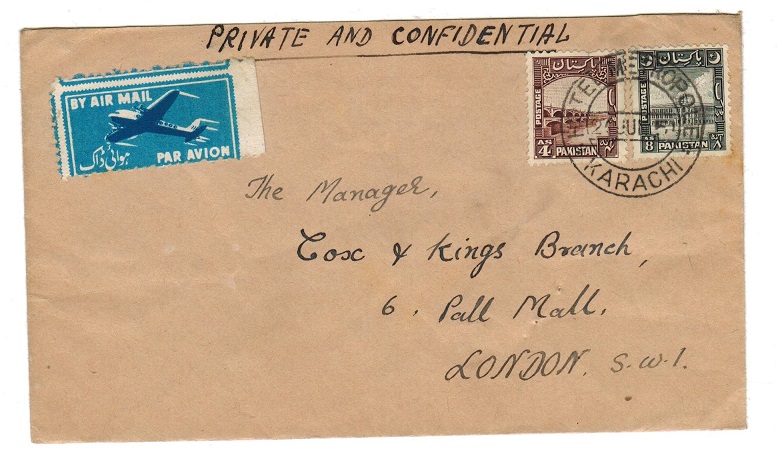 PRIVATE AND CONFIDENTIAL
BY AIR MAIL
ہوائی ڈاک
PAR AVION
پاکستان
POSTAGE
AS 4
PAKISTAN
پاکستان
POSTAGE
AS 8
PAKISTAN
KARACHI
The Manager,
Cox & Kings Branch,
6, Pall Mall,
LONDON. S.W.1.